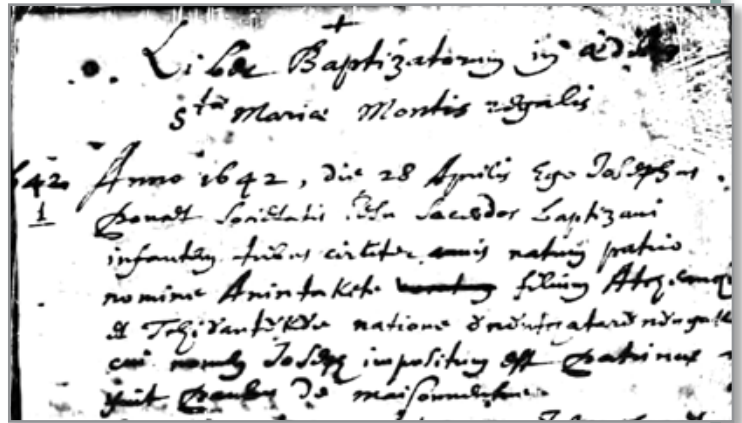 Liber Baptizatorum in ædibus
Stæ Mariæ Montis regalis
642 Anno 1642, die 28 Aprilis Ego Josephus
1 Poncet Societatis Jesu Sacerdos baptizavi
infantem tribus circiter annis natum patrio
nomine Anintakete filium
et natione
cui nomen Joseph impositum est Patrinus
fuit Paulus De maisonneufve